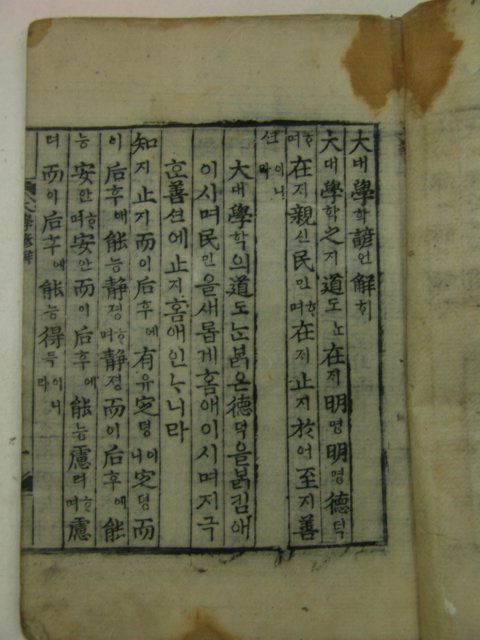 大대學학諺언解ᄒᆡ
大대學학之지道도ᄂᆞᆫ在ᄌᆡ明명明명德덕
ᄒᆞ며在ᄌᆡ親신民민ᄒᆞ며在ᄌᆡ止지於어至지善
션이니라
大대學학의道도ᄂᆞᆫᄇᆞᆰ은德덕을ᄇᆞᆰ킴애
이시며民민을새롭게홈애이시며지극
ᄒᆞᆫ善션에止지홈애인ᄂᆞ니라
知지止지而이后후에有유定뎡이니定뎡而
이后후에能능靜졍ᄒᆞ며靜졍而이后후에能
능安안ᄒᆞ며安안而이后후에能능慮려ᄒᆞ며慮
려而이后후에能능得득이니라
大學諺解